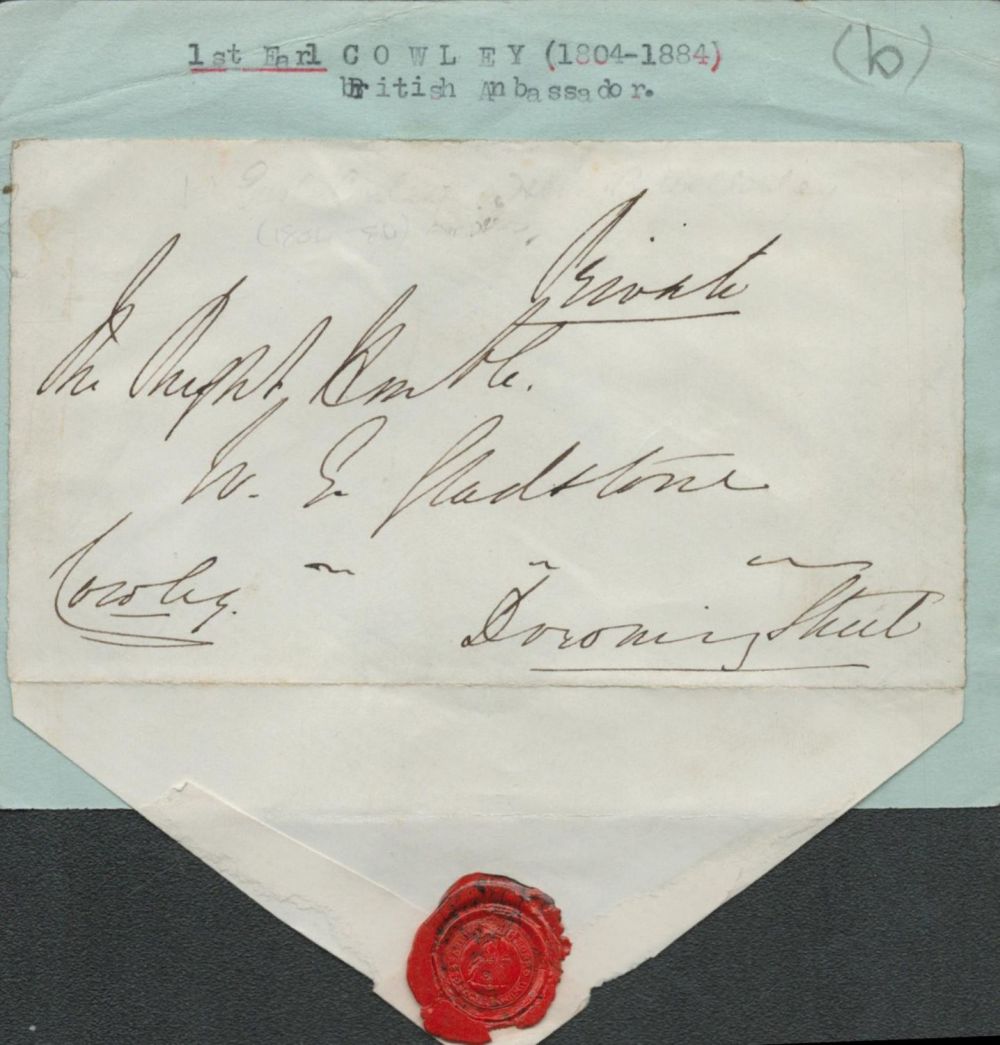 1st Earl COWLEY (1804-1884)
British Ambassador.
(b)
Private
The Right Honble.
W. E. Gladstone
Cowley.
Downing Street